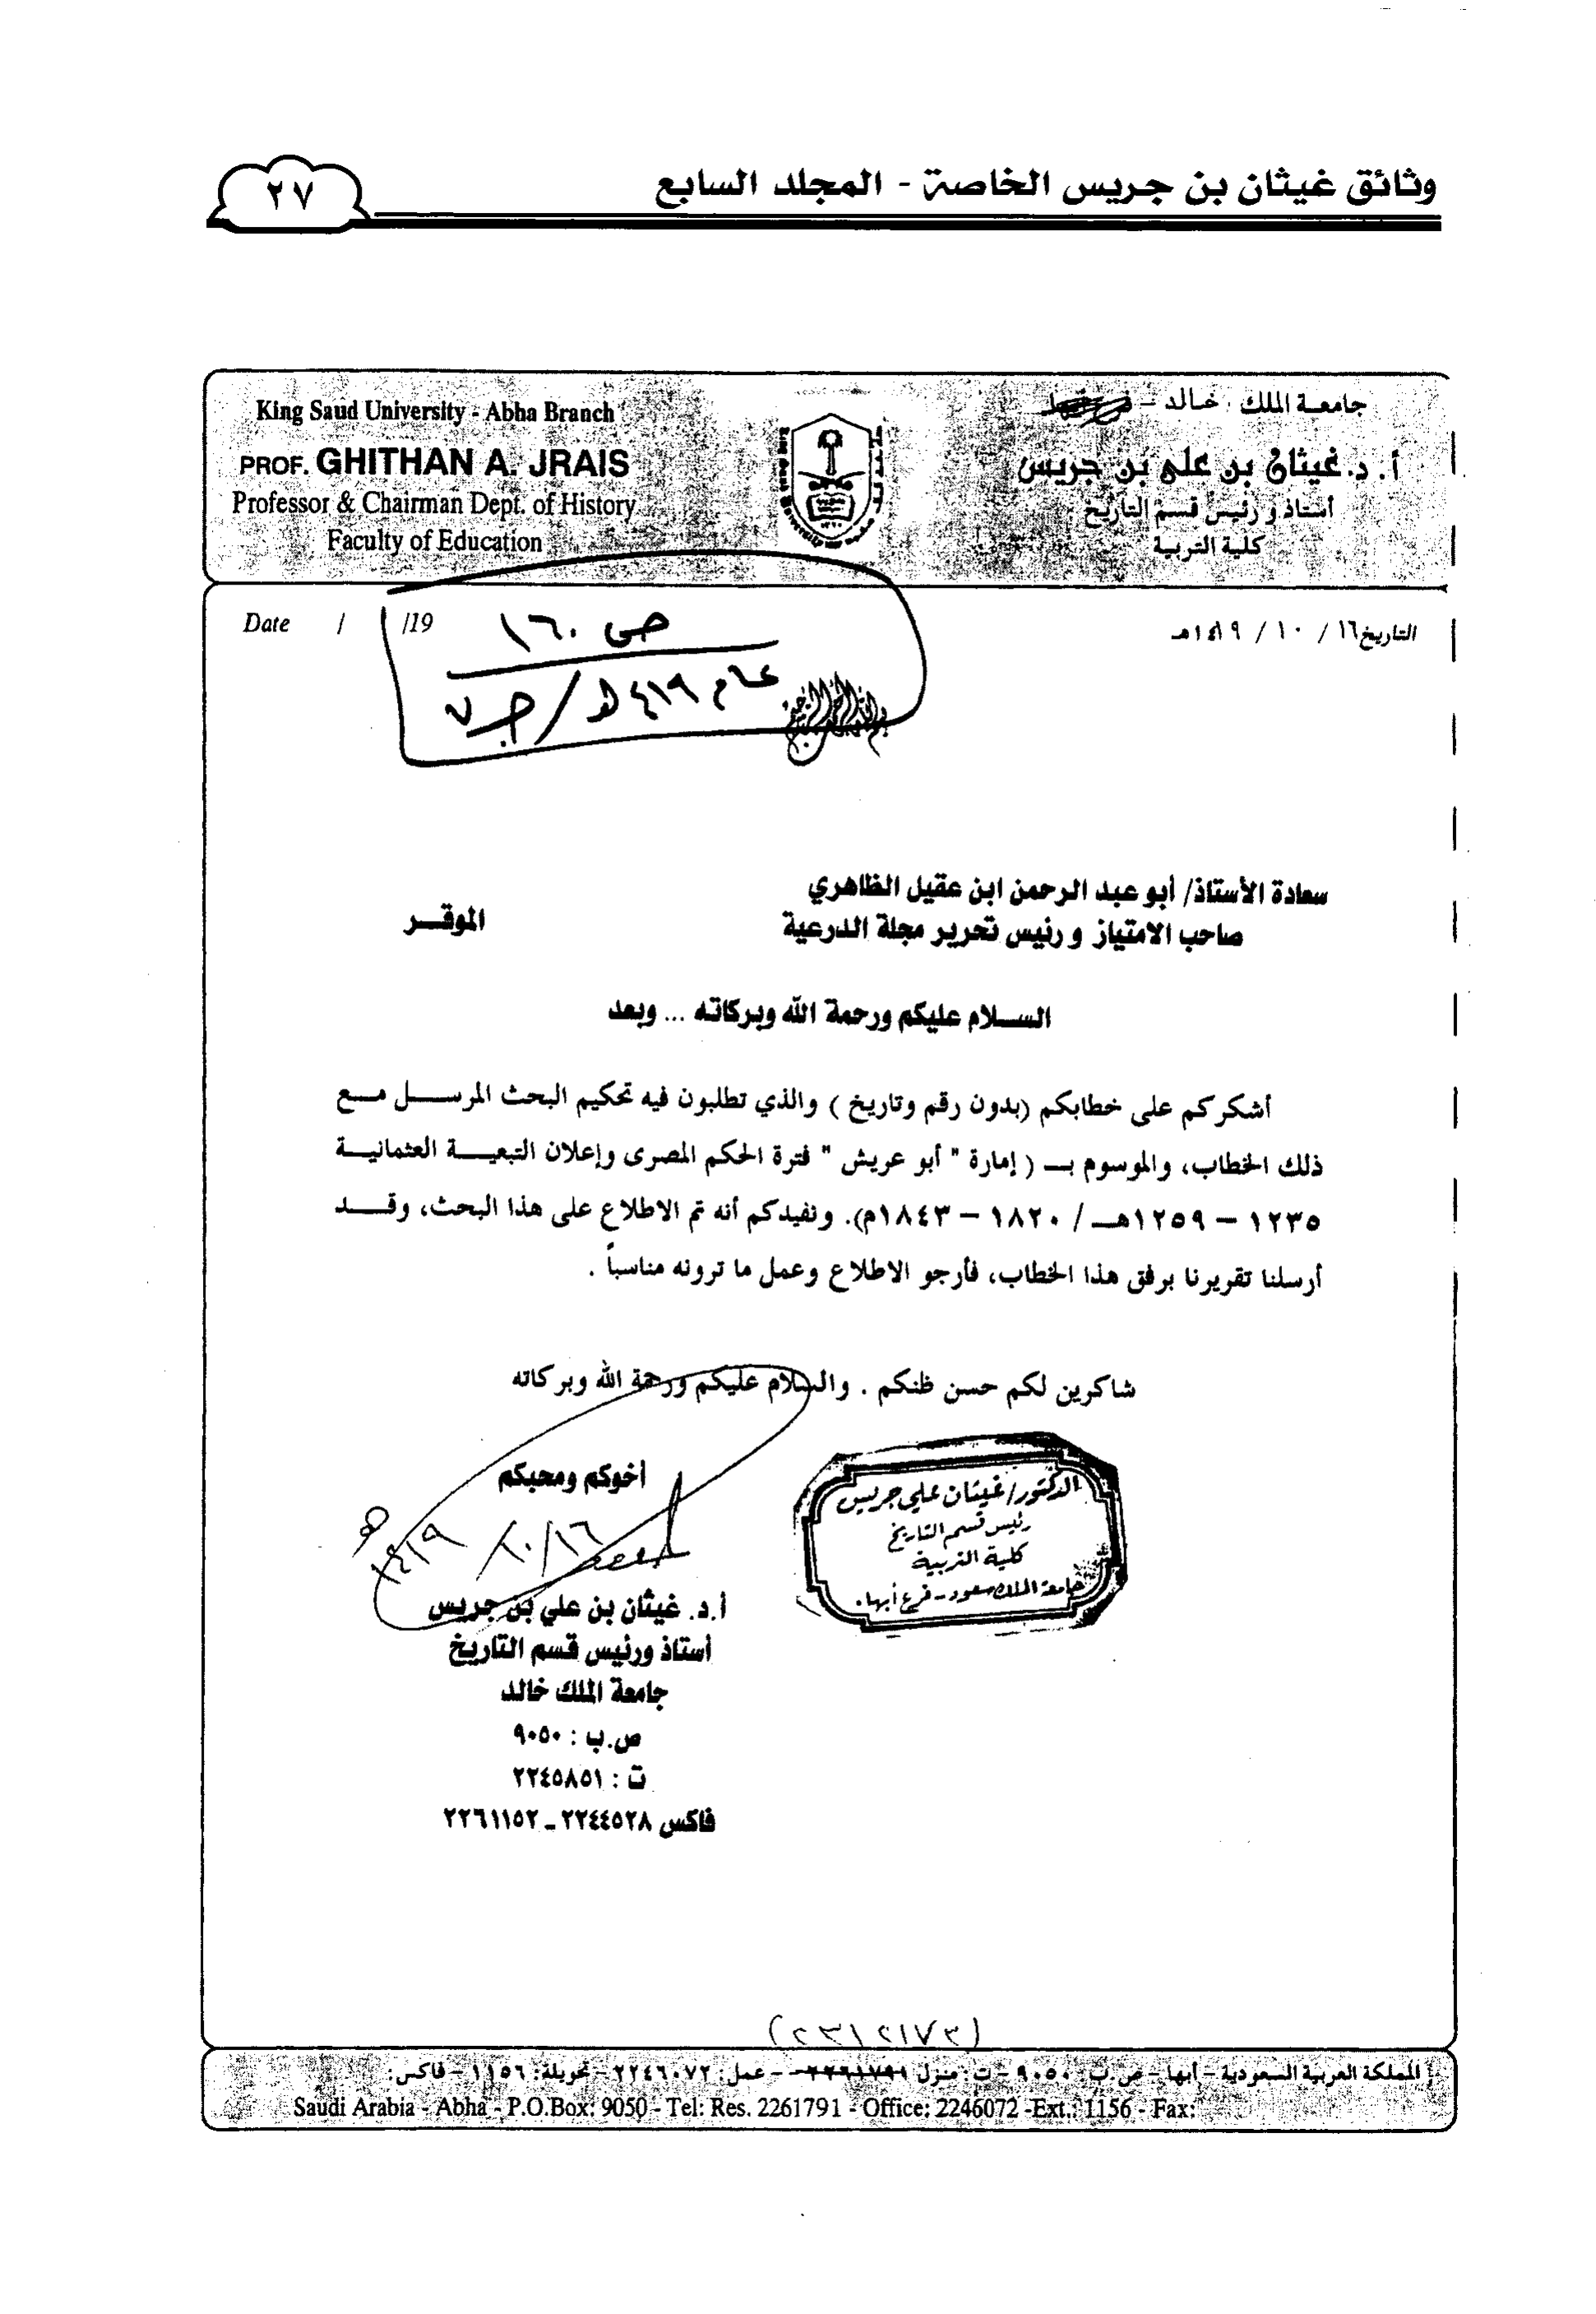 وثائق غيثان بن جريس الخاصة - المجلد السابع
٢٧
King Saud University - Abha Branch
PROF. GHITHAN A. JRAIS
Professor & Chairman Dept. of History
Faculty of Education
جامعة الملك خالد -
أ. د. غيثان بن علي بن جريس
أستاذ و رئيس قسم التاريخ
كلية التربية
Date / /19
التاريخ ١٦ / ١٠ / ١٤١٩هـ
ص ١٦٠
عام ١٤١٩هـ / جـ ٧
بسم الله الرحمن الرحيم
سعادة الأستاذ/ أبو عبد الرحمن ابن عقيل الظاهري
صاحب الامتياز ورئيس تحرير مجلة الدرعية الموقـــر
الســلام عليكم ورحمة الله وبركاته ... وبعد
أشكركم على خطابكم (بدون رقم وتاريخ ) والذي تطلبون فيه تحكيم البحث المرســـل مـــع
ذلك الخطاب، والموسوم بـــ ( إمارة " أبو عريش " فترة الحكم المصرى وإعلان التبعيـــة العثمانيـــة
١٢٣٥ – ١٢٥٩هــ / ١٨٢٠ – ١٨٤٣م). ونفيدكم أنه تم الاطلاع على هذا البحث، وقـــد
أرسلنا تقريرنا برفق هذا الخطاب، فأرجو الاطلاع وعمل ما ترونه مناسباً .
شاكرين لكم حسن ظنكم . والسلام عليكم ورحمة الله وبركاته
أخوكم ومحبكم
١٦/١٠/١٤١٩هـ
أ.د. غيثان بن علي بن جريس
أستاذ ورئيس قسم التاريخ
جامعة الملك خالد
ص.ب : ٩٠٥٠
ت : ٢٢٤٥٨٥١
فاكس ٢٢٤٤٥٢٨ ـ ٢٢٦١١٥٢
الدكتور/ غيثان علي جريس
رئيس قسم التاريخ
كلية التربية
جامعة الملك سعود - فرع أبها.
المملكة العربية السعودية - أبها - ص.ب: ٩٠٥٠ - ت: منزل ٢٢٦١٧٩١ - عمل: ٢٢٤٦٠٧٢ - تحويلة: ١١٥٦ - فاكس:
Saudi Arabia - Abha - P.O.Box: 9050 - Tel: Res. 2261791 - Office: 2246072 -Ext.: 1156 - Fax: